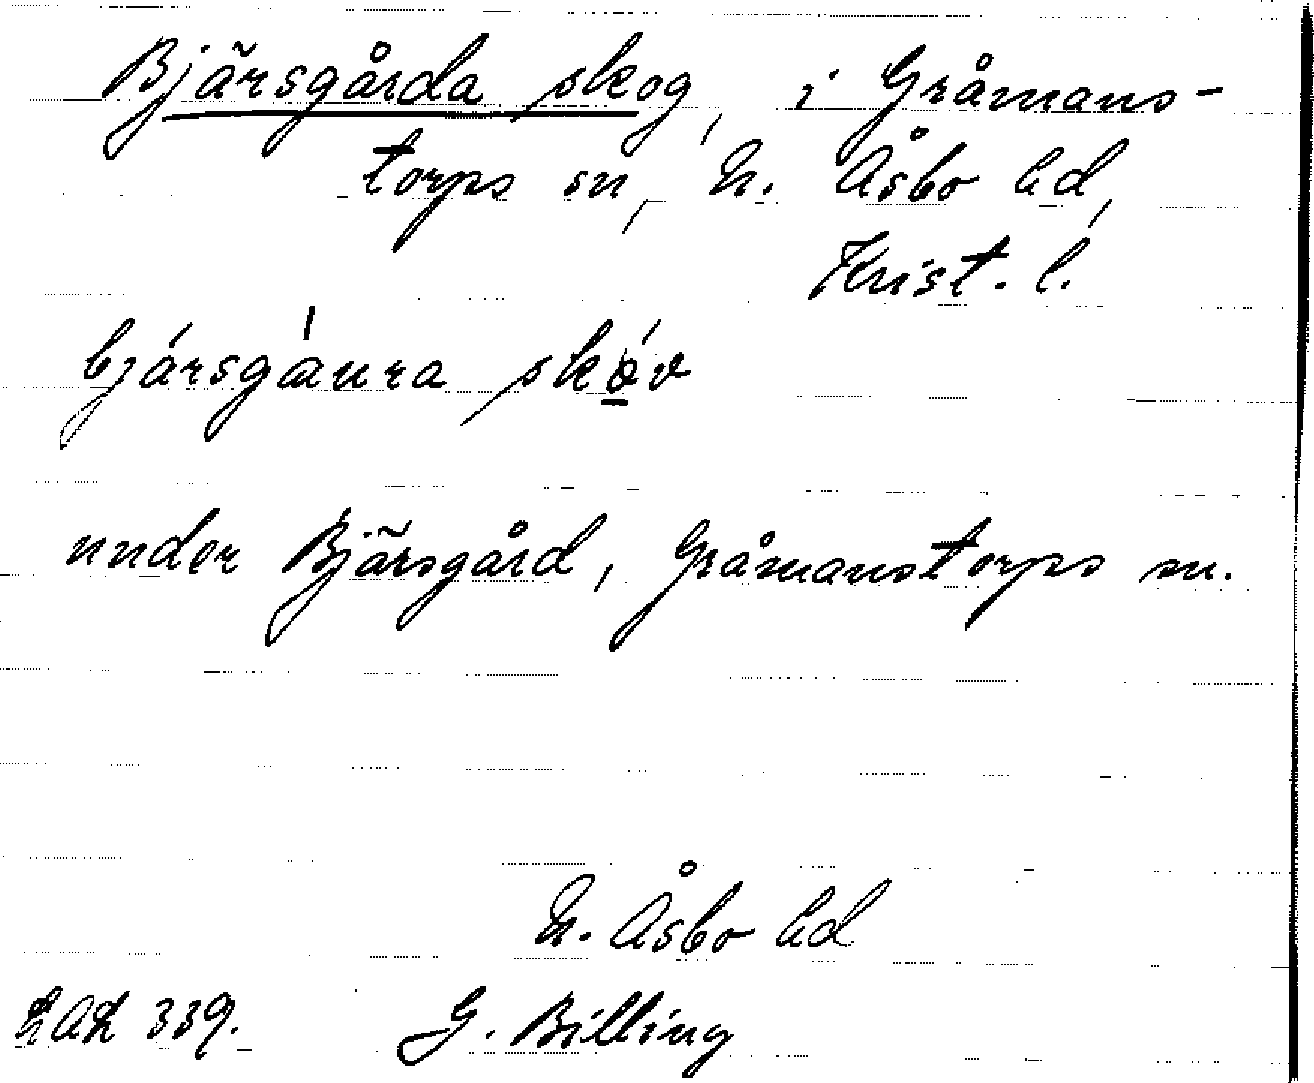 Bjärsgårda skog, i Gråmans-
torps sn, N. Åsbo hd,
Krist. l.
bjársgánra skóv
under Bjärsgård, Gråmanstorps sn.
N. Åsbo hd
LAL 339. G. Billing